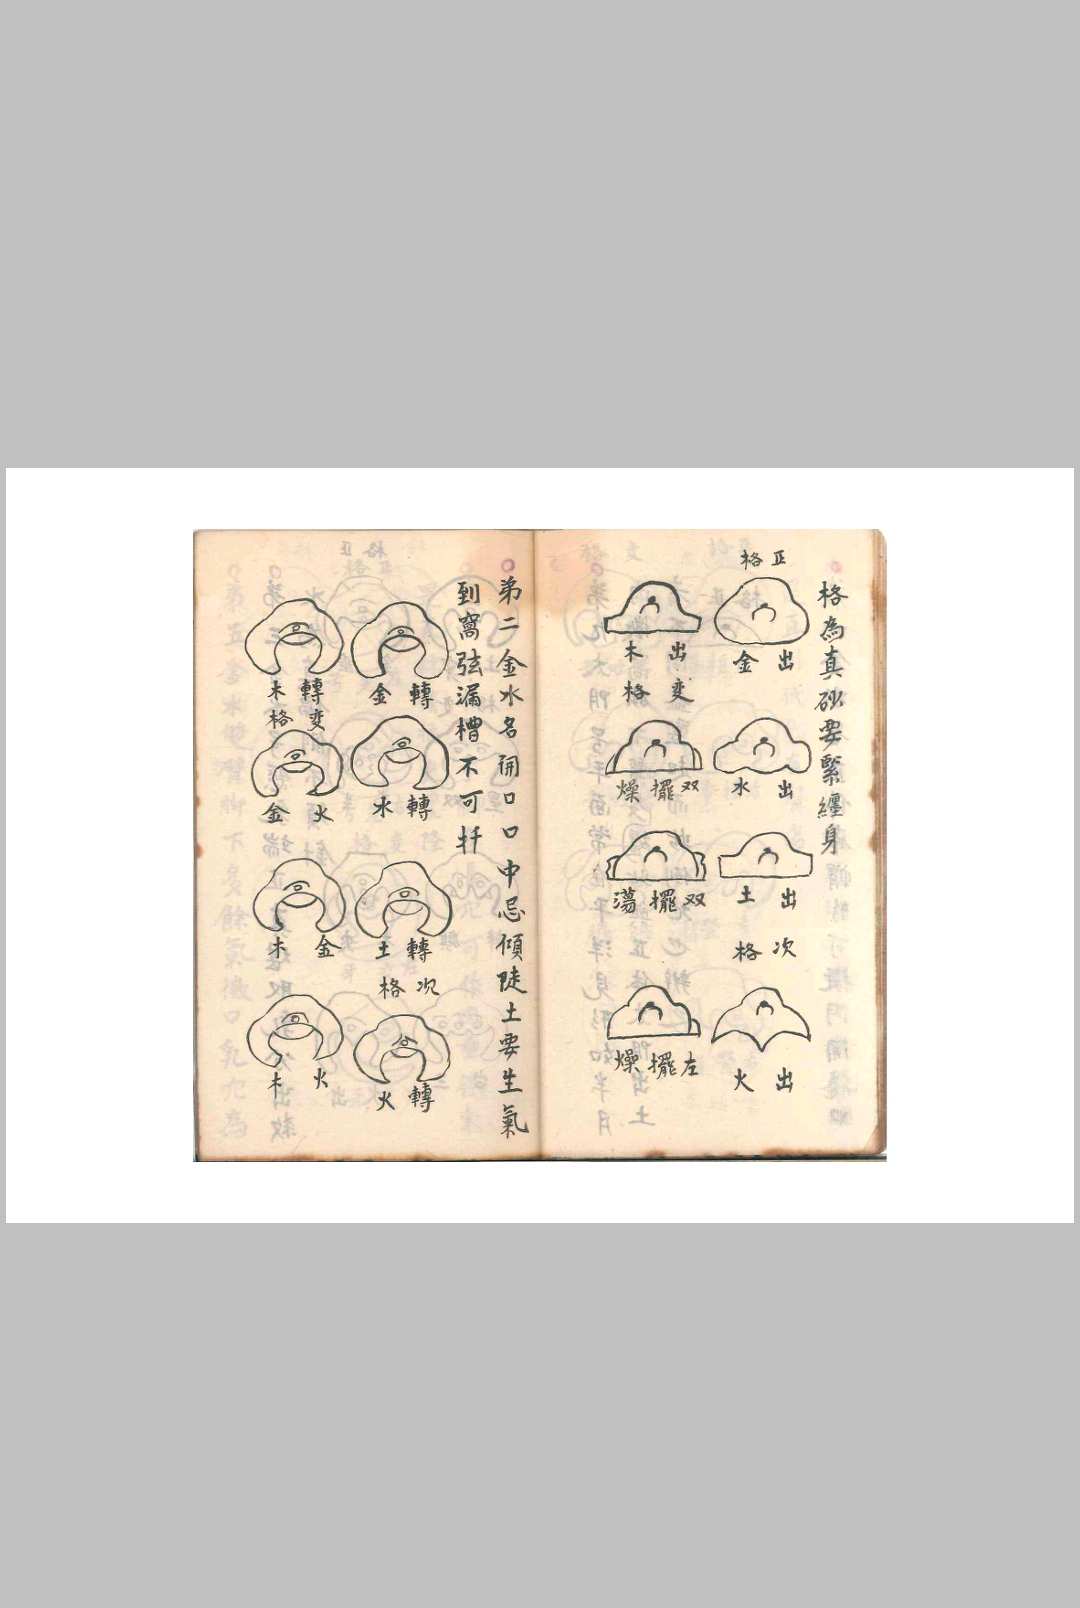 格為真砂要緊纏身
正格
出金
出水
出土
次格
出火
出木
变格
双擺燥
双擺蕩
左擺燥
第二金水名開口口中忌傾陡土要生氣
到窩弦漏槽不可扦
轉金
轉水
轉土
次格
轉火
轉木
变格
火金
金木
火木